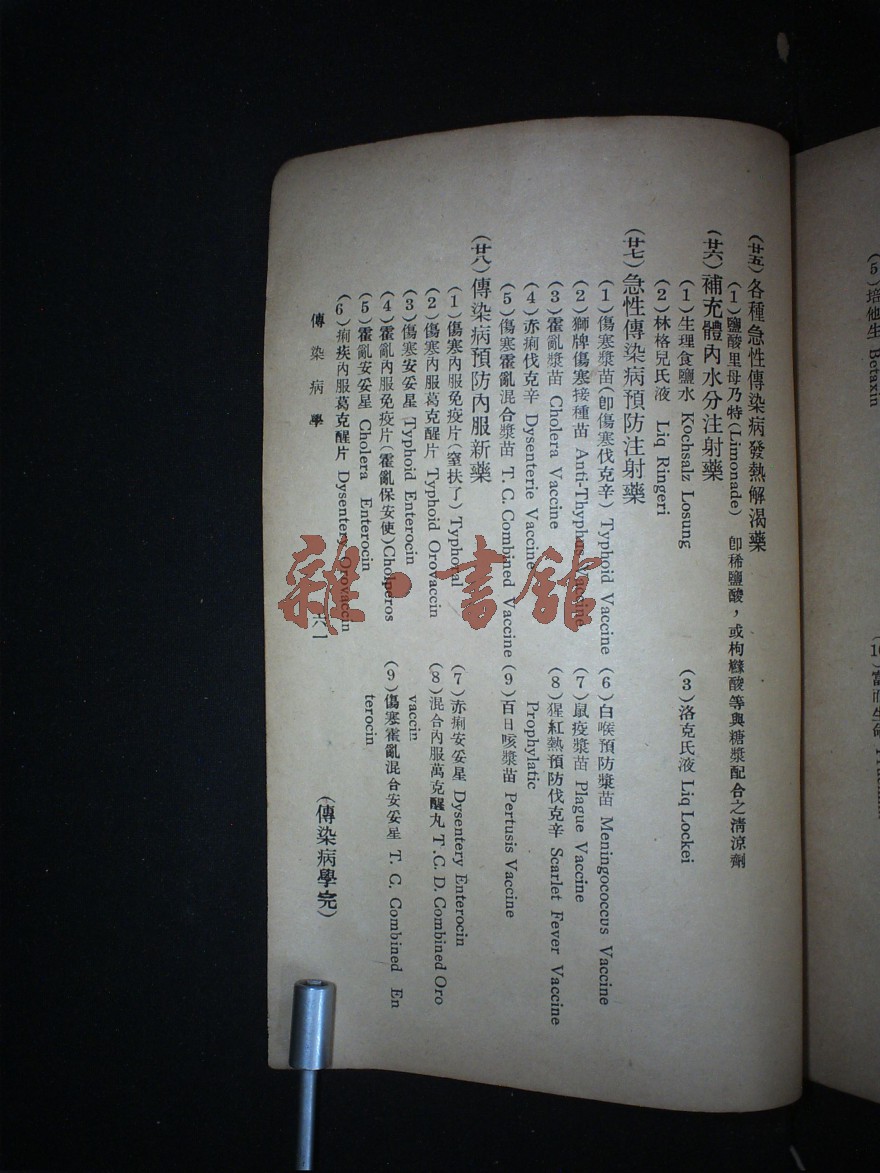 (廿五)各種急性傳染病發熱解渴藥
(1)鹽酸里母乃特(Limonade) 卽稀鹽酸，或枸櫞酸等與糖漿配合之清涼劑
(廿六)補充體內水分注射藥
(1)生理食鹽水 Kochsalz Losung
(3)洛克氏液 Liq Lockei
(2)林格兒氏液 Liq Ringeri
(廿七)急性傳染病預防注射藥
(1)傷寒漿苗(卽傷寒伐克辛) Typhoid Vaccine
(6)白喉預防漿苗 Meningococcus Vaccine
(2)獅牌傷寒接種苗 Anti-Thyphus Vaccine
(7)鼠疫漿苗 Plague Vaccine
(3)霍亂漿苗 Cholera Vaccine
(8)猩紅熱預防伐克辛 Scarlet Fever Vaccine
Prophylatic
(4)赤痢伐克辛 Dysenterie Vaccine
(5)傷寒霍亂混合漿苗 T. C. Combined Vaccine
(9)百日咳漿苗 Pertusis Vaccine
(廿八)傳染病預防內服新藥
(1)傷寒內服免疫片(窒扶了) Typhoral
(7)赤痢安妥星 Dysentery Enterocin
(2)傷寒內服葛克醒片 Typhoid Orovaccin
(8)混合內服萬克醒丸 T. C. D. Combined Oro
vaccin
(3)傷寒安妥星 Typhoid Enterocin
(4)霍亂內服免疫片(霍亂保安使) Cholperos
(9)傷寒霍亂混合安妥星 T. C. Combined En
terocin
(5)霍亂安妥星 Cholera Enterocin
(6)痢疾內服葛克醒片 Dysentery Orovaccin
傳染病學
六一
(傳染病學完)
(5)培他生 Betaxin
雜·書館